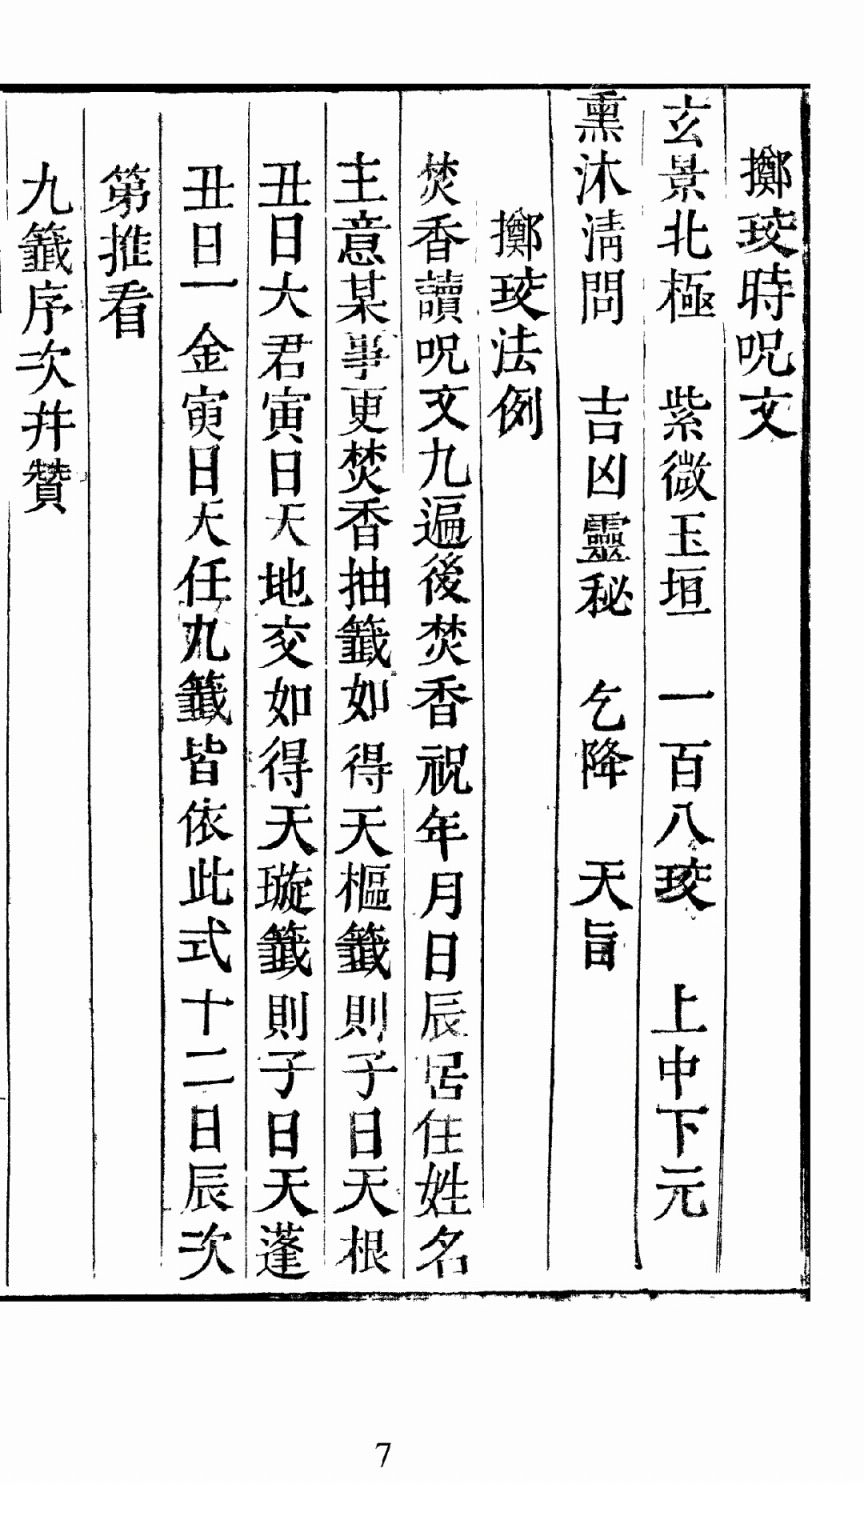 擲珓時呪文
玄景北極　紫微玉垣　一百八珓　上中下元
熏沐淸問　吉凶靈秘　乞降　天旨
擲珓法例
焚香讀呪文九遍後焚香祝年月日辰居住姓名
主意某事更焚香抽籤如得天樞籤則子日天根
丑日大君寅日天地交如得天璇籤則子日天蓬
丑日一金寅日大任九籤皆依此式十二日辰次
第推看
九籤序次幷贊
7